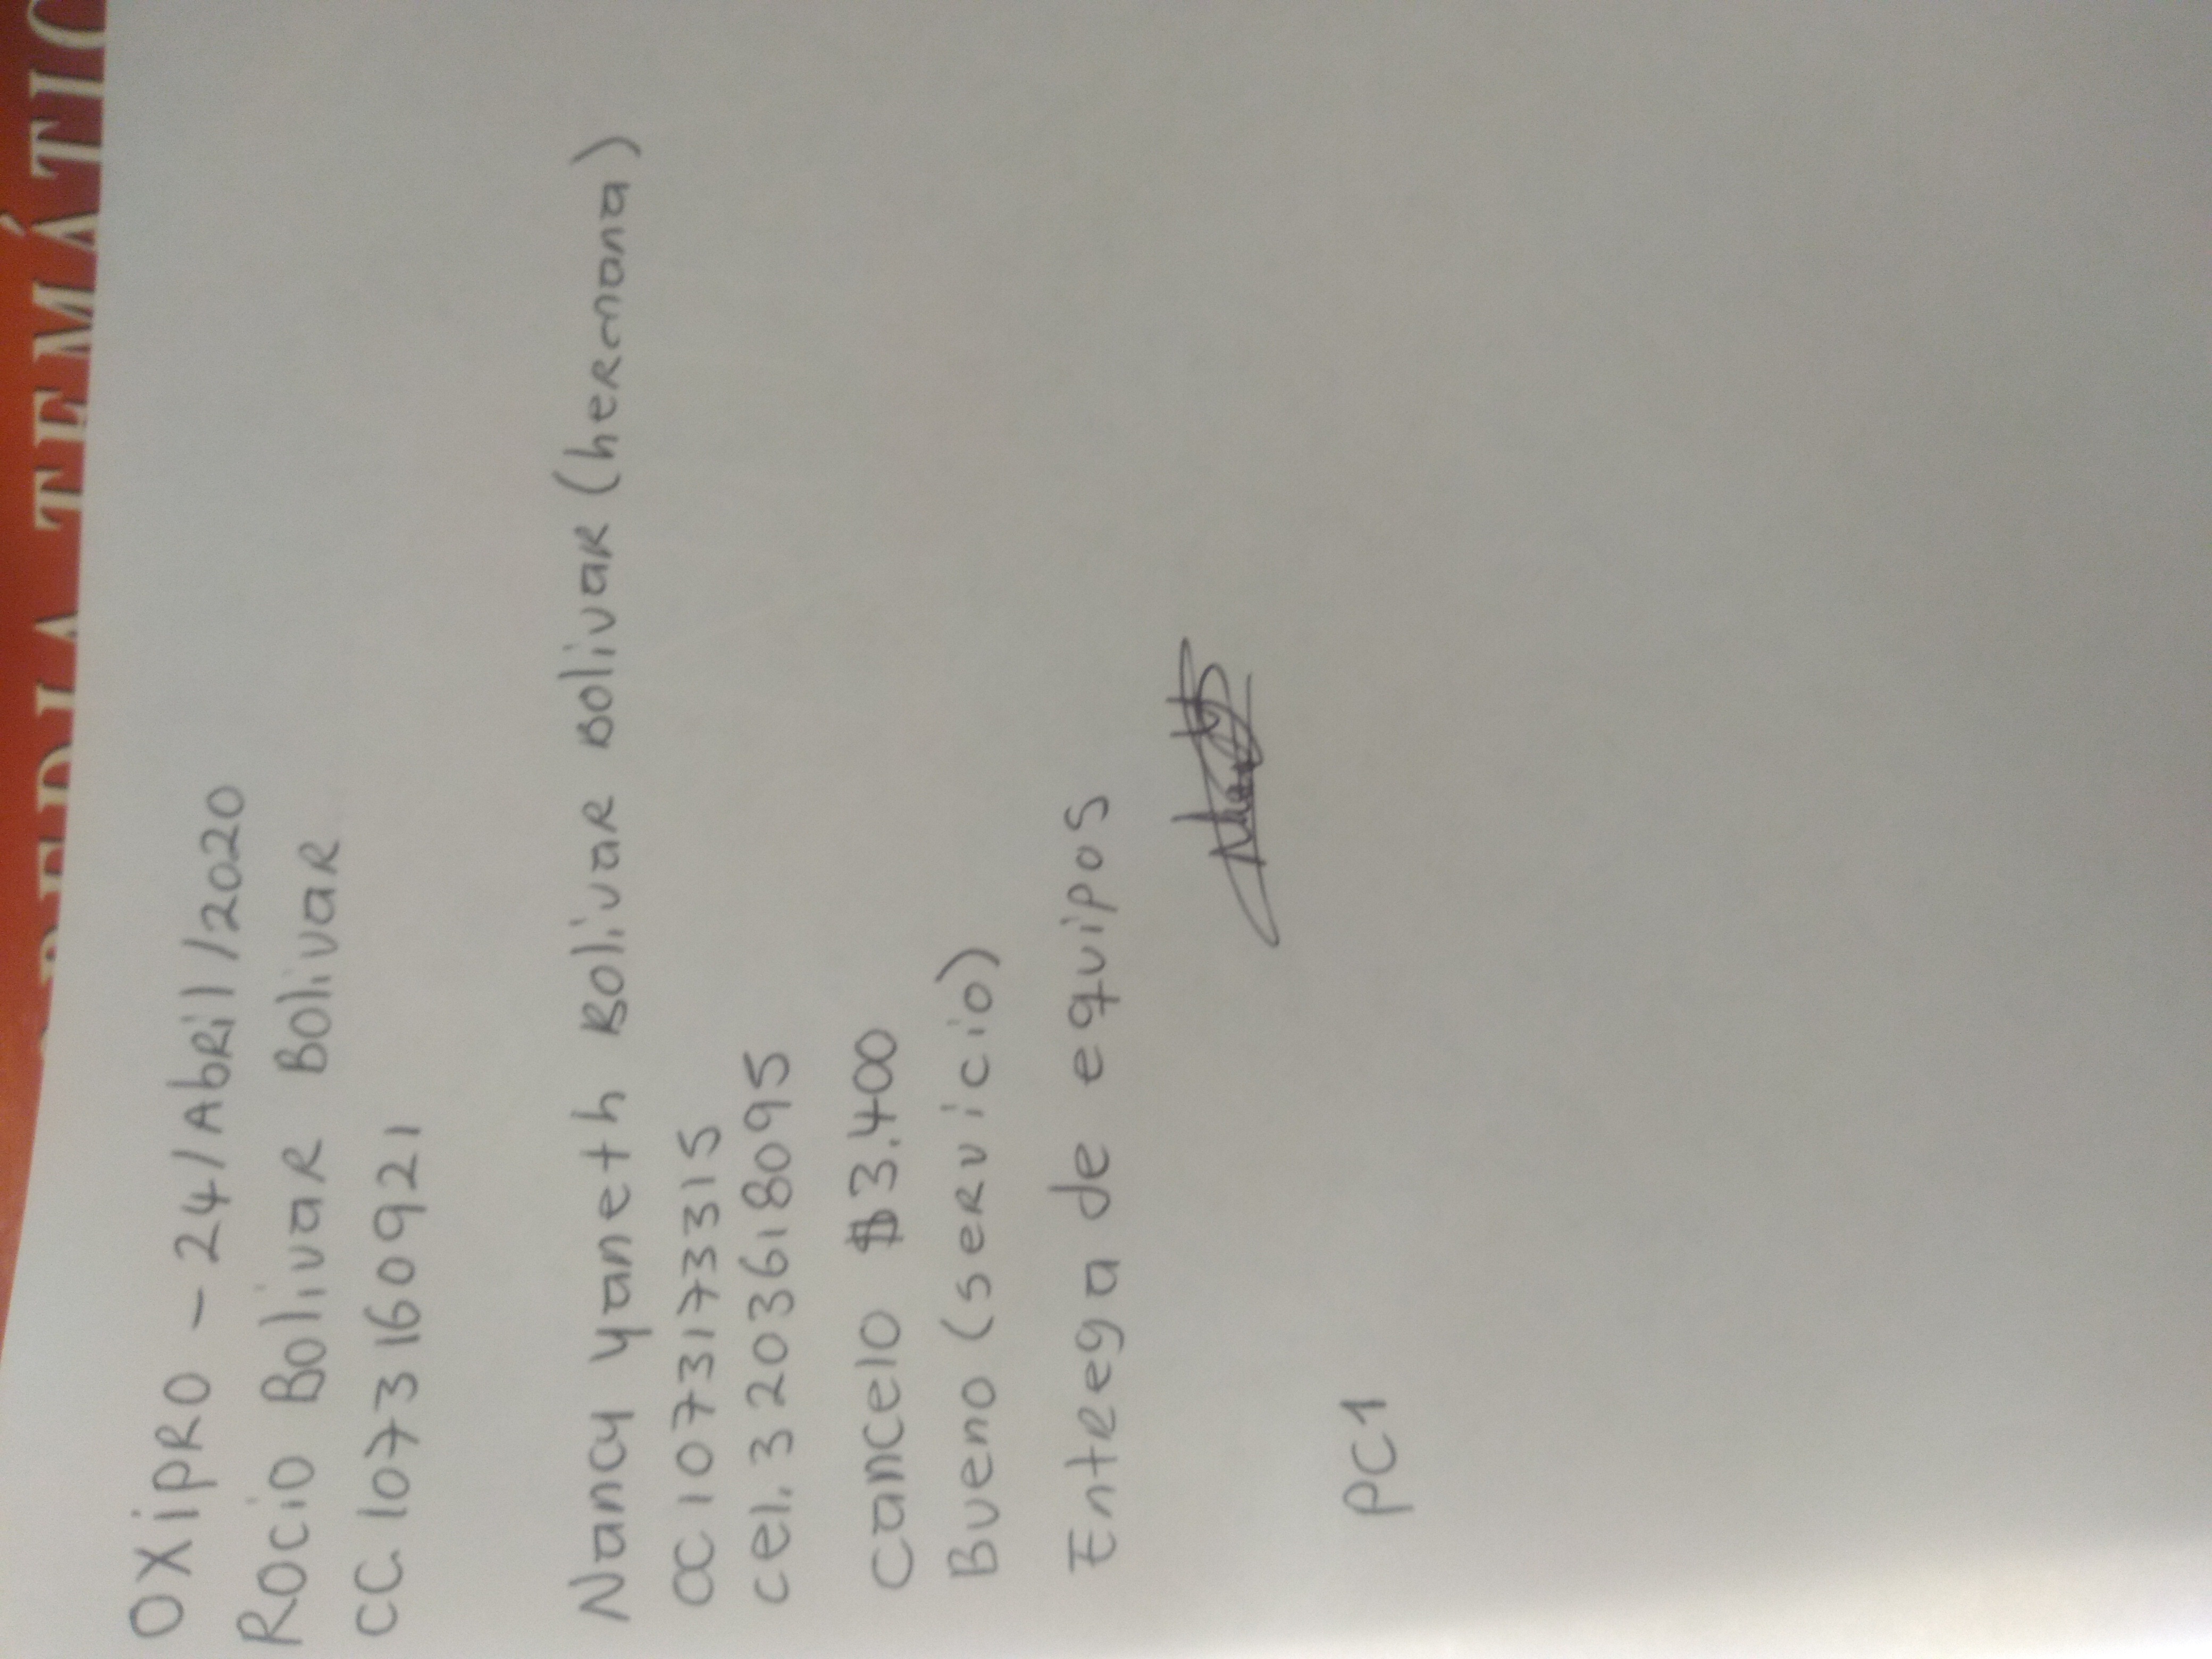 OXIPRO - 24/Abril/2020
Rocio Bolivar Bolivar
CC. 1073160921
Nancy Yaneth Bolivar Bolivar (hermana)
CC 1073173315
cel. 3203618095
Cancelo $3.400
Bueno (servicio)
Entrega de equipos
PC1